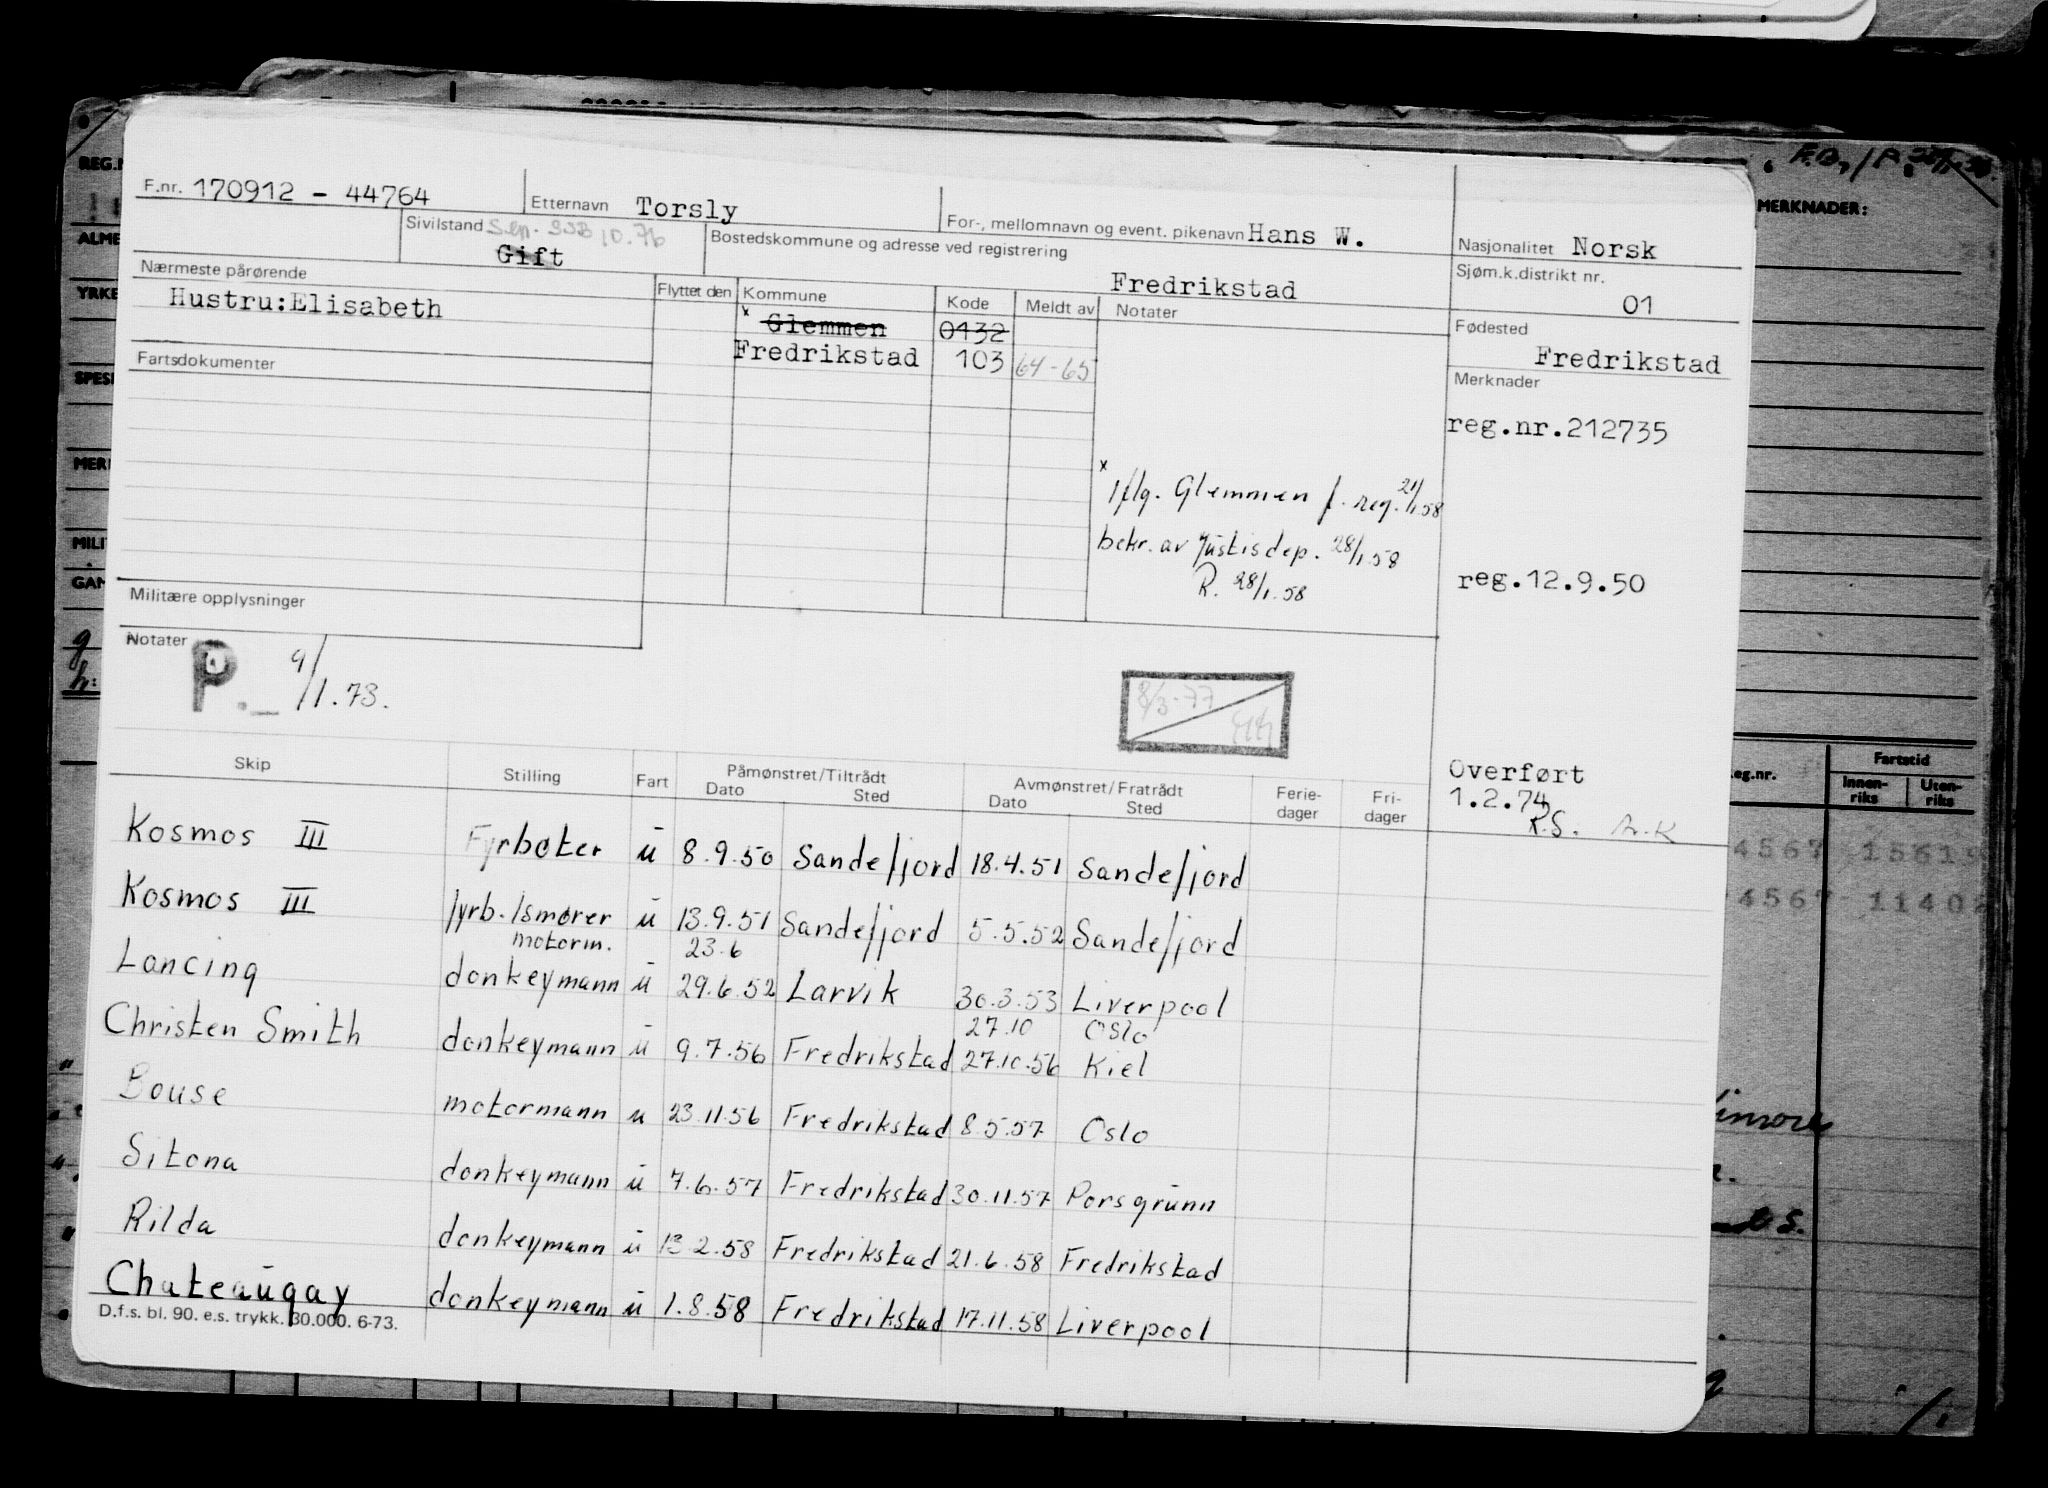 F.nr. 170912 - 44764 Etternavn Torsly For-, mellomnavn og event. pikenavn Hans W. Nasjonalitet Norsk
Sivilstand Sep. SSB 10.76 Gift Bostedskommune og adresse ved registrering Fredrikstad Sjøm.k.distrikt nr. 01
Nærmeste pårørende Flyttet den Kommune Kode Meldt av Notater Fødested
Hustru:Elisabeth x Glemmen 0132 Fredrikstad
Fartsdokumenter Fredrikstad 103 64-65 Merknader
reg.nr.212735
x Iflg. Glemmen f. reg. 21/1.58
bekr. av Justisdep. 28/1.58
R. 28/1.58
reg.12.9.50
Militære opplysninger
Notater P. 9/1.73.
8/3-77
Overført
1.2.74
R.S. A.K
Skip Stilling Fart Påmønstret/Tiltrådt Avmønstret/Fratrådt Ferie-dager Fri-dager
Dato Sted Dato Sted
Kosmos III Fyrbøter u 8.9.50 Sandefjord 18.4.51 Sandefjord
Kosmos III fyrb./smører u 13.9.51 Sandefjord 5.5.52 Sandefjord
motorm. 23.6
Lancing donkeymann u 29.6.52 Larvik 30.3.53 Liverpool
27.10 Oslo
Christen Smith donkeymann u 9.7.56 Fredrikstad 27.10.56 Kiel
Bouse motormann u 23.11.56 Fredrikstad 8.5.57 Oslo
Sitona donkeymann u 7.6.57 Fredrikstad 30.11.57 Porsgrunn
Rilda donkeymann u 13.2.58 Fredrikstad 21.6.58 Fredrikstad
Chateaugay donkeymann u 1.8.58 Fredrikstad 17.11.58 Liverpool
D.f.s. bl. 90. e.s. trykk. 30.000. 6-73.
MERKNADER:
eg.nr. Fartstid
Innen-riks Uten-riks
4567
4567 1140
REG.
ALME
YRKE
SPESI
MER
MILI
GAM